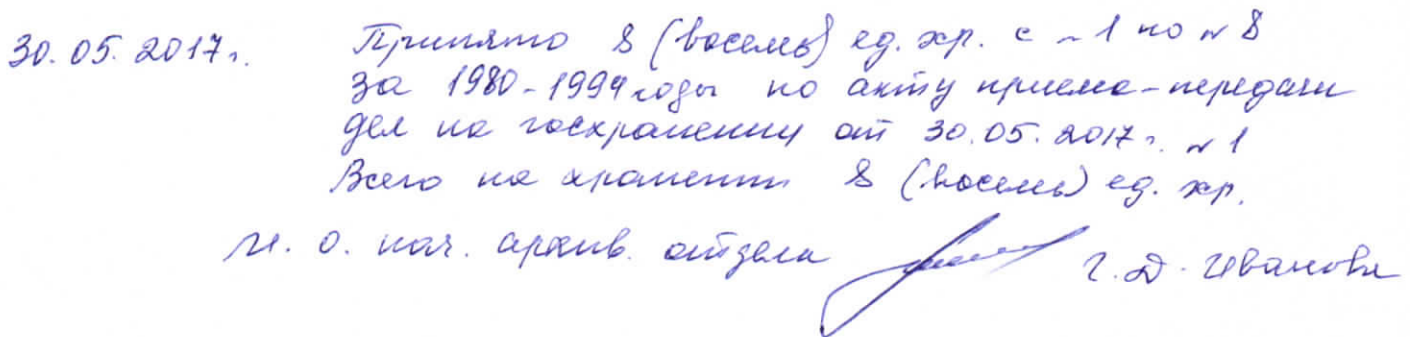 30.05.2017г. Принято 8 (восемь) ед. хр. с №1 по №8
за 1980-1994 годы по акту приема-передачи
дел на госхранении от 30.05.2017г. №1
Всего на хранении 8 (восемь) ед. хр.
И. о. нач. архив. отдела Г.Д. Иванова